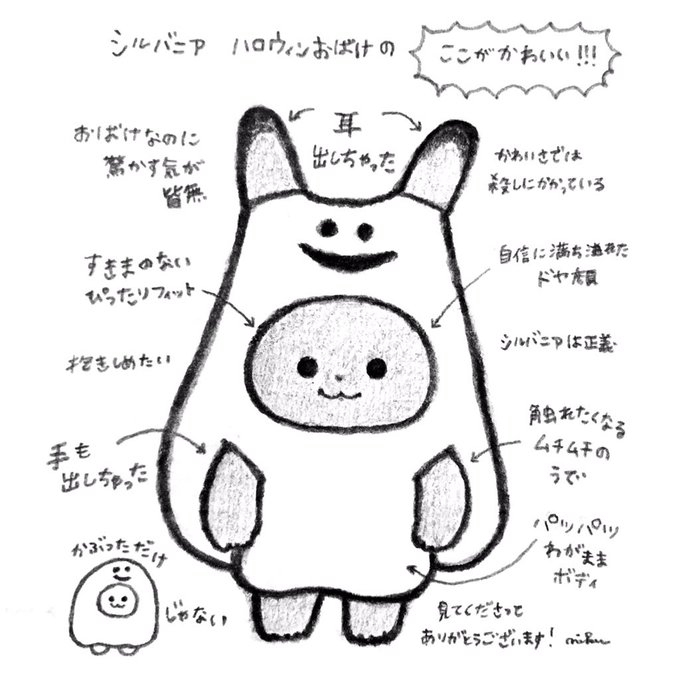 シルバニア ハロウィンおばけの
ここがかわいい!!!
耳
出しちゃった
おばけなのに
驚かす気が
皆無
かわいさでは
殺しにかかっている
すきまのない
ぴったりフィット
自信に満ち溢れた
ドヤ顔
抱きしめたい
シルバニアは正義
手も
出しちゃった
触れたくなる
ムチムチの
うで
パツパツ
わがまま
ボディ
かぶっただけ
じゃない
見てくださって
ありがとうございます!